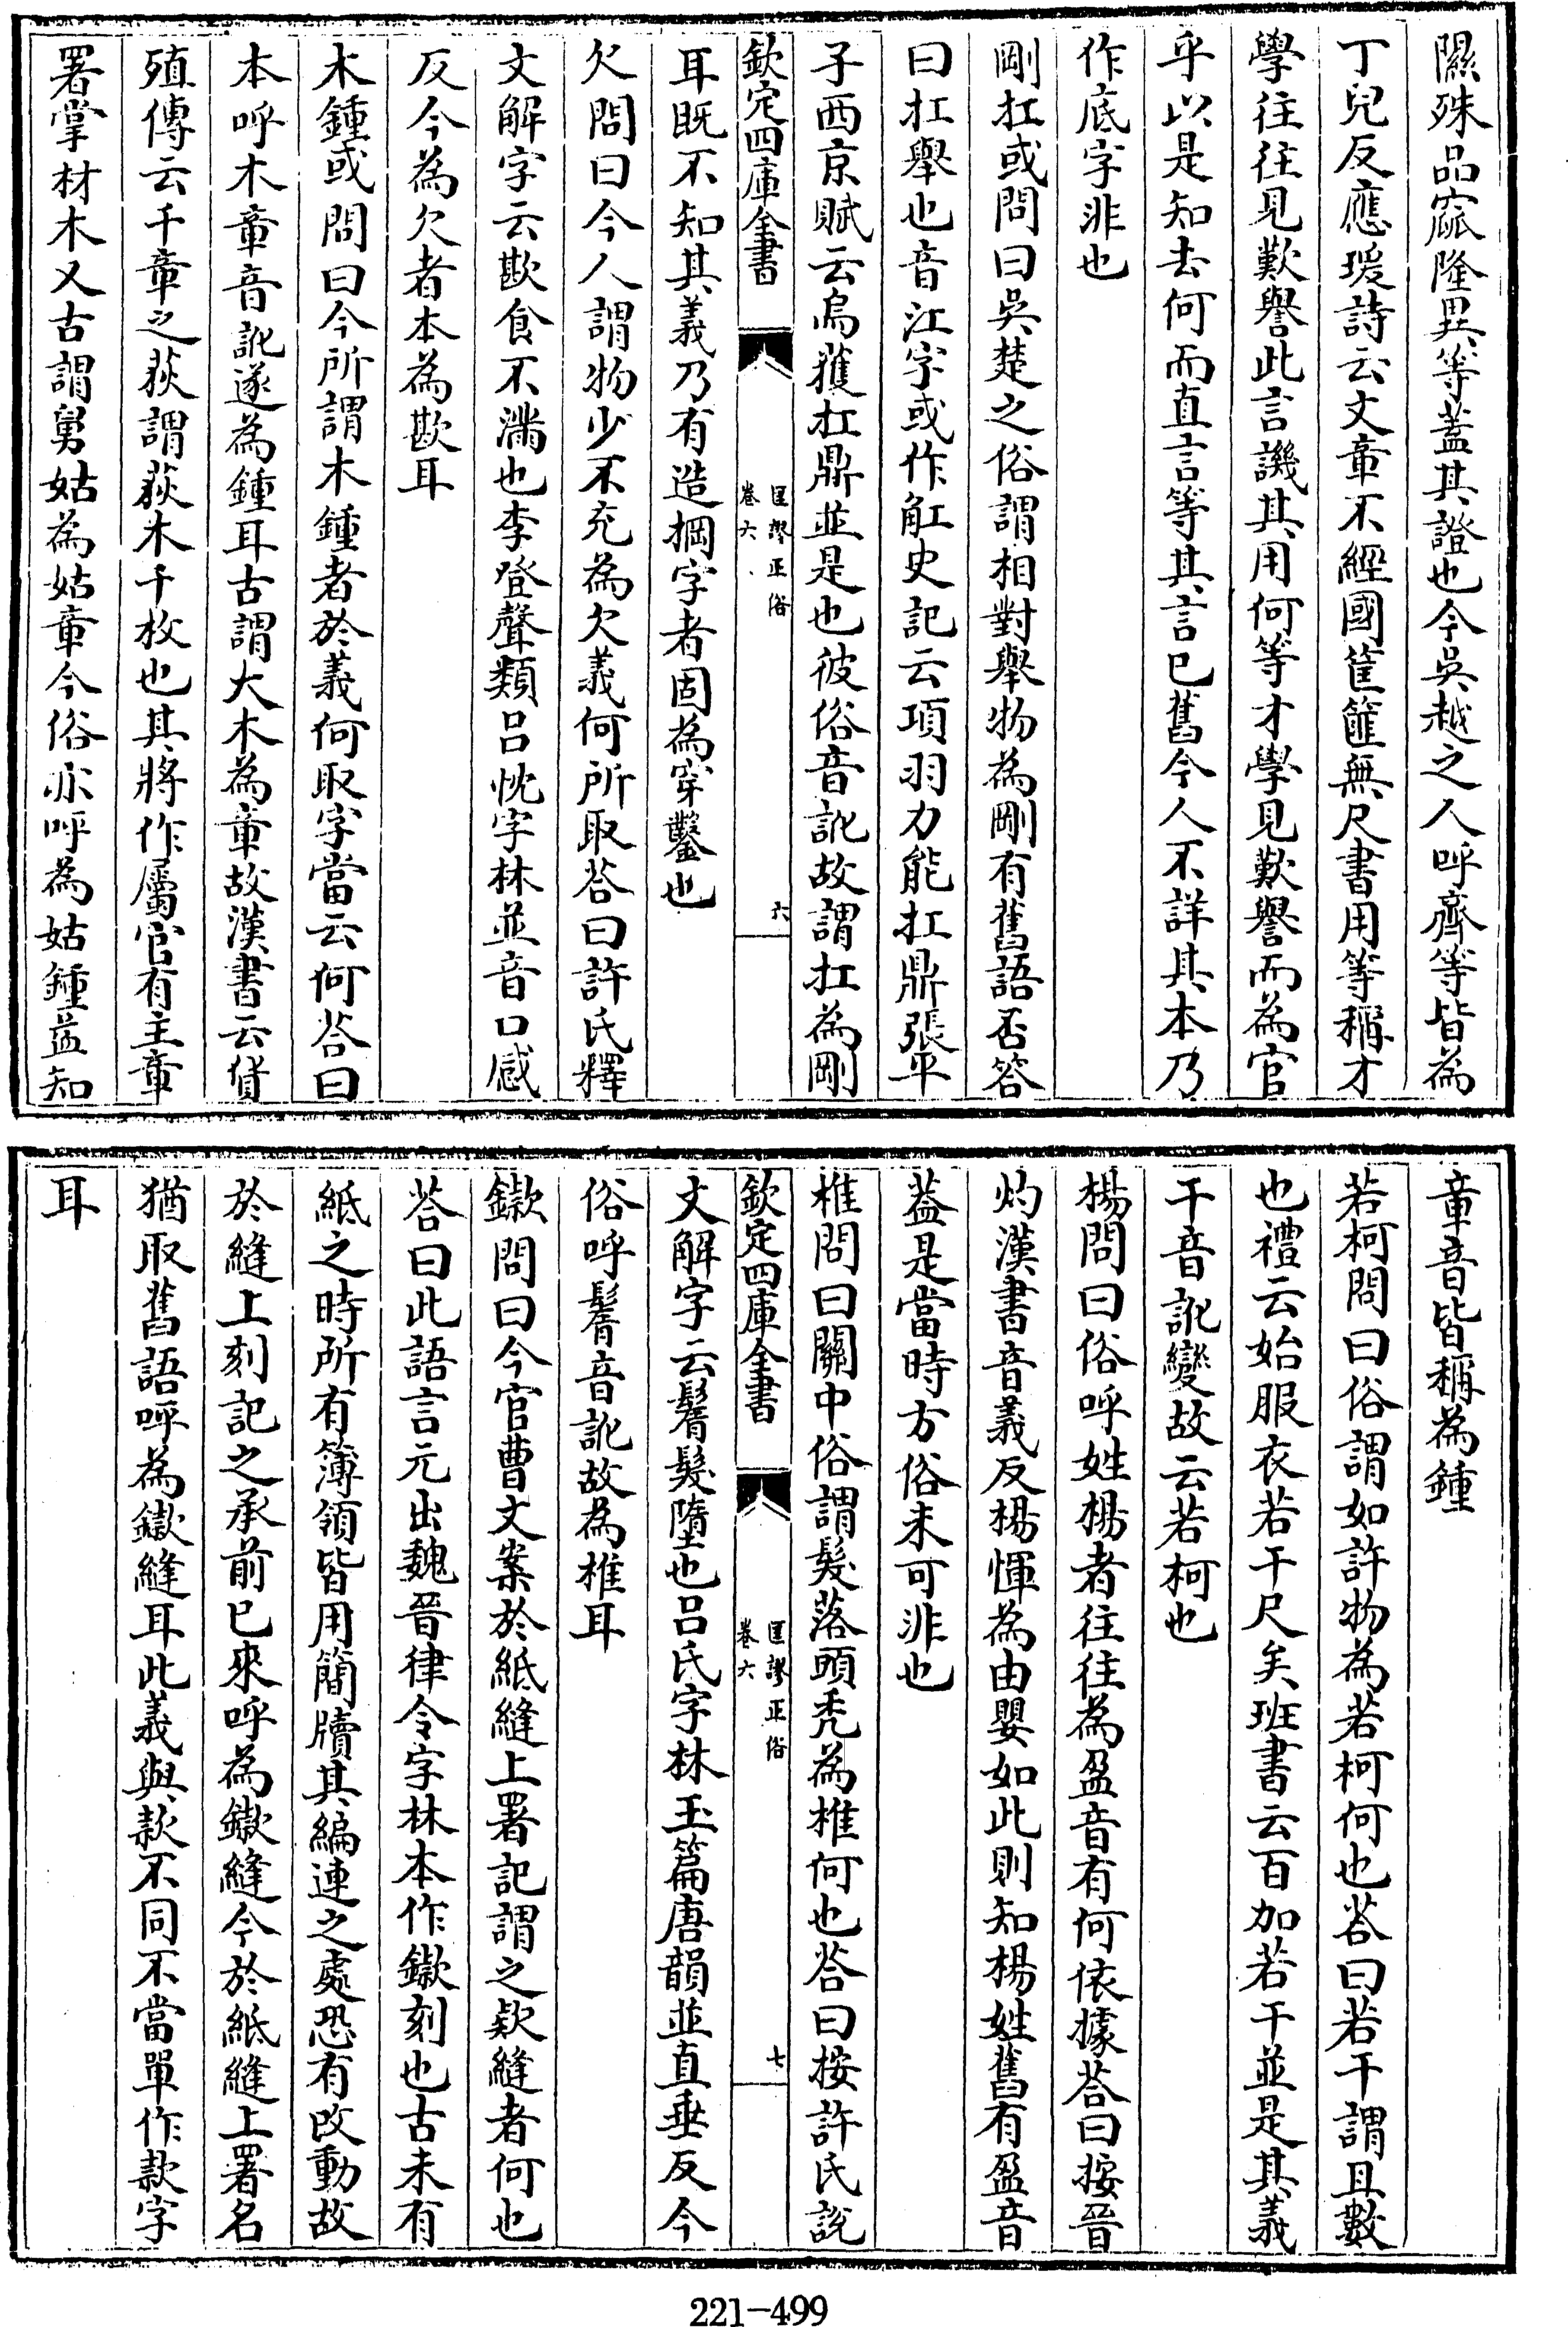 隰殊品窳隆異等蓋其證也今吳越之人呼齊等皆為
丁兒反應瑗詩云文章不經國筐篚無尺書用等稱才
學往往見歎譽此言譏其用何等才學見歎譽而為官
乎以是知去何而直言等其言已舊今人不詳其本乃
作底字非也
剛扛或問曰吳楚之俗謂相對舉物為剛有舊語否答
曰扛舉也音江字或作舡史記云項羽力能扛鼎張平
子西京賦云烏獲扛鼎並是也彼俗音訛故謂扛為剛
欽定四庫全書
匡謬正俗
卷六
六
耳既不知其義乃有造掆字者固為穿鑿也
欠問曰今人謂物少不充為欠義何所取荅曰許氏釋
文解字云歁食不滿也李登聲類呂忱字林並音口感
反今為欠者本為歁耳
木鍾或問曰今所謂木鍾者於義何取字當云何荅曰
本呼木章音訛遂為鍾耳古謂大木為章故漢書云貨
殖傳云千章之萩謂萩木千枚也其將作屬官有主章
署掌材木又古謂舅姑為姑章今俗亦呼為姑鍾益知
章音皆稱為鍾
若柯問曰俗謂如許物為若柯何也荅曰若干謂且數
也禮云始服衣若干尺矣班書云百加若干並是其義
干音訛變故云若柯也
楊問曰俗呼姓楊者往往為盈音有何依據荅曰按晉
灼漢書音義反楊惲為由嬰如此則知楊姓舊有盈音
葢是當時方俗未可非也
椎問曰關中俗謂髮落頭秃為椎何也荅曰按許氏說
欽定四庫全書
匡謬正俗
卷六
七
文解字云鬌髮墮也呂氏字林玉篇唐韻並直垂反今
俗呼鬌音訛故為椎耳
鏉問曰今官曹文案於紙縫上署記謂之欵縫者何也
荅曰此語言元出魏晉律令字林本作鏉刻也古未有
紙之時所有簿領皆用簡牘其編連之處恐有改動故
於縫上刻記之承前已來呼為鏉縫今於紙縫上署名
猶取舊語呼為鏉縫耳此義與款不同不當單作款字
耳
221-499